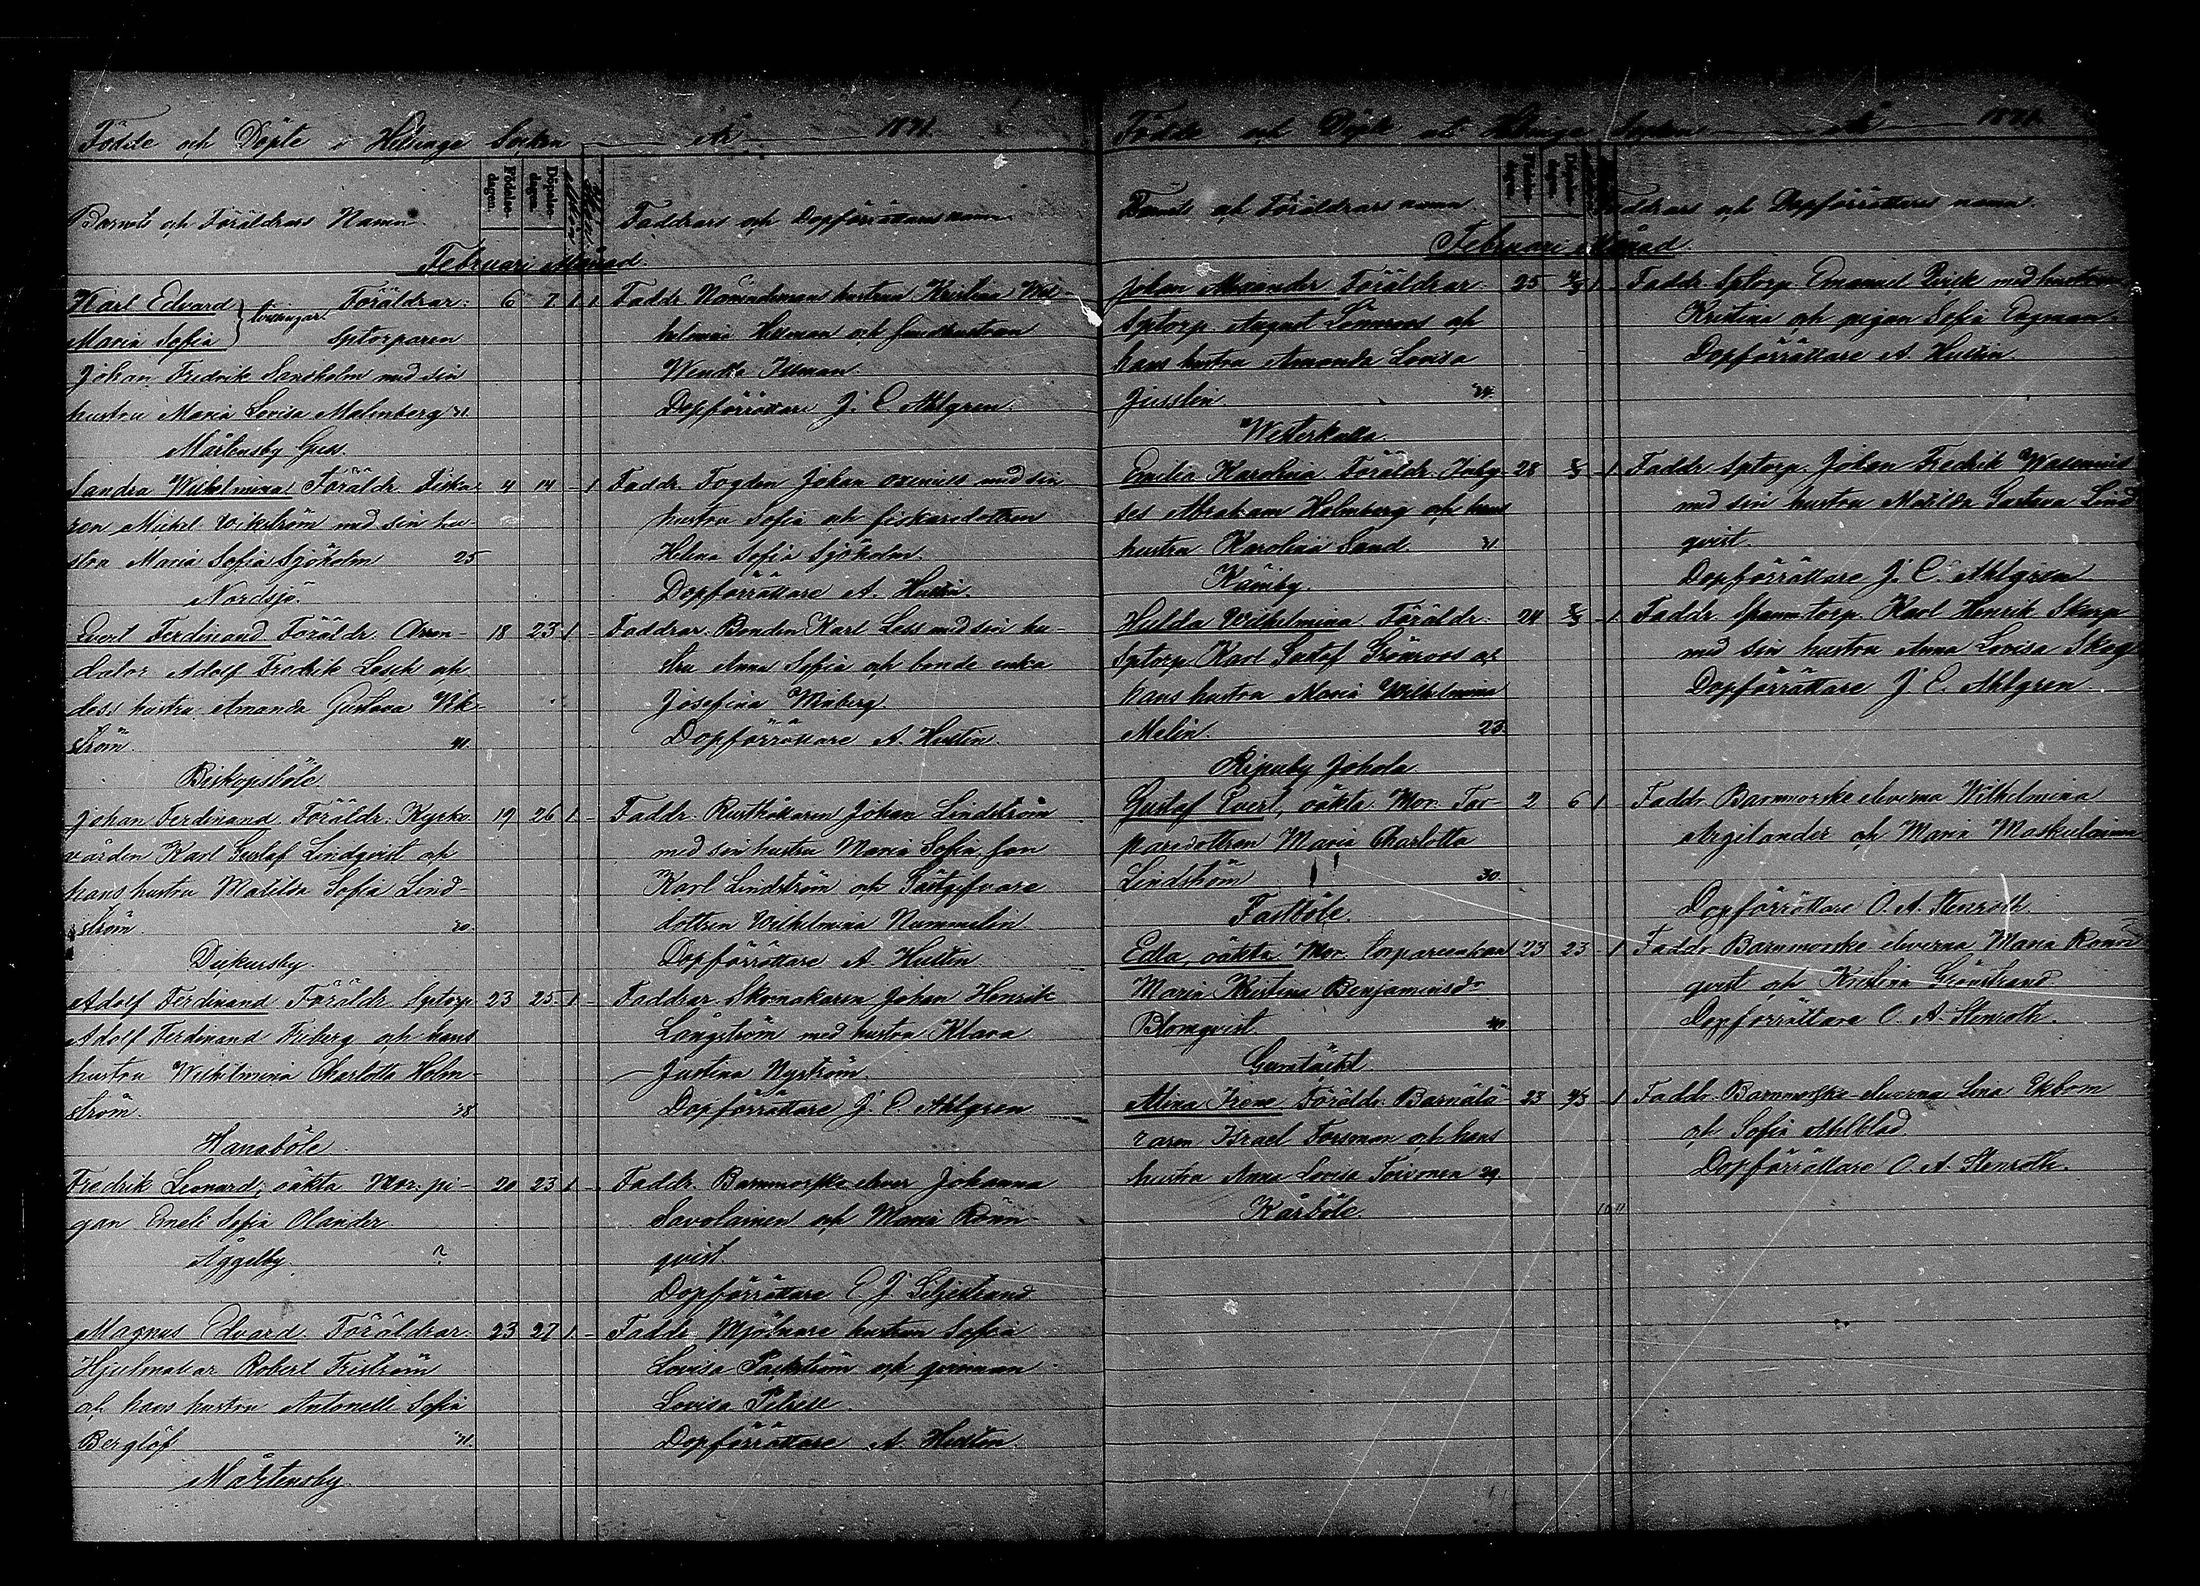 Födde och Döpte i Helsinge Socken år 1871.
Barnets och Föräldrars Namn.
Födelse-dagen.
Döpelse-dagen.
Faddrars och Dopförrättares namn
Februari Månad.
Karl Edvard } tvillingar. Föräldrar: 6 7 1 1
Maria Sofia } Sptorparen
Johan Fredrik Sensholm med sin
hustru Maria Lovisa Malmberg 31.
Mårtensby Guss.
Faddr. hustrun Kristina Wil-
helmina och
Dopförrättare J. E. Ahlgren.
Sandra Wilhelmina Föräldr. Fiska- 4 14 - 1
ren Michel Wikström med sin hu-
stru Maria Sofia Sjöholm 25
Nordsjö.
Faddr. Fogden Johan med sin
hustru Sofia och fiskaredottren
Helena Sofia Sjöholm.
Dopförrättare A. Hustin.
Evert Ferdinand Föräldr. Arren- 18 23 1 -
dator Adolf Fredrik Lesch och
dess hustru Amanda Gustava Wik-
ström
Biskopsböle.
Faddrar. Bonden Karl Less med sin hu-
stru Anna Sofia och bonde enka
Josefina Winberg
Dopförrättare A. Hustin.
Johan Ferdinand Föräldr. Kyrko 19 26 1 -
värden Karl Gustaf Lindqvist och
hans hustru Matilda Sofia Lind-
ström. 30.
Dickursby.
Faddr. Rusthållaren Johan Lindström
med sin hustru Maria Sofia,
Karl Lindström och Gästgifvare
dottren Wilhelmina Nummelin.
Dopförrättare A. Hustin.
Adolf Ferdinand Föräldr. Sptorp 23 25 1 -
Adolf Ferdinand Friberg och hans
hustru Wilhelmina Charlotta Holm-
ström. 38
Hanaböle.
Faddrar. Skomakaren Johan Henrik
Långström med hustru Klara
Justina Nyström.
Dopförrättare J. E. Ahlgren
Fredrik Leonard, oäkta Mor. pi- 20 23 1 -
gan Emeli Sofia Olander.
Åggelby. ?
Faddr. Barnmorske elever Johanna
Savolainen och Maria Rönn
qvist.
Dopförrättare E. J.
Magnus Edvard Föräldrar. 23 27 1 -
Hjulmakar Robert Friström
och hans hustru Antonette Sofia
Berglöf 31.
Mårtensby
Faddr. Mjölnare hustrun Sofia
Lovisa och qvinnan
Lovisa Petrell.
Dopförrättare A. Hustin.
Födde och Döpte uti Helsinge Socken år 1871.
Barnets och Föräldrars namn.
Faddrars och Dopförrättares namn.
Februari Månad.
Johan Alexander Föräldrar 25 4/3 1 -
Sptorp. August Lönnroos och
hans hustru Amanda Lovisa
Jusslin 24.
Westerkulla.
Faddr. Sptorp. Emanuel med hustrun
Kristina och pigan Sofia Engman.
Dopförrättare A. Hustin
Emilia Karolina Föräldr. Inhy- 28 - 1
ses Abraham Holmberg och hans
hustru Karolina Sand. 31
Kånby.
Faddr. Sptorp. Johan Fredrik
med sin hustru Matilda Gustava Lind
qvist.
Dopförrättare J. E. Ahlgren
Hulda Wilhelmina Föräldr. 24 - 1
Sptorp. Karl Gustaf Grönroos och
hans hustru Maria Wilhelmina
Melin. 23.
Ripuby Johola.
Faddr. torp. Karl Henrik Skarp
med sin hustru Anna Lovisa Skog
Dopförrättare J. E. Ahlgren.
Gustaf Evert, oäkta Mor. Tor- 2 6 1 -
paredottren Maria Charlotta
Lindström 30.
Fastböle.
Faddr. Barnmorske eleverna Wilhelmina
Argilander och Maria
Dopförrättare O. A. Stenroth
Edla, oäkta Mor. Torpareenkan 23 23 - 1
Maria Kristina Benjaminsdr
Blomqvist 40
Gumtäckt.
Faddr. Barnmorske eleverna Maria Rönn
qvist och Kristina Grönstrand
Dopförrättare O. A. Stenroth.
Alma Irene Föräldr. Barnalä- 23 - 1
raren Israel Forsman och hans
hustru Anna Lovisa Toivonen 29.
Kårböle.
Faddr. Barnmorske eleverna Lena Ekbom
och Sofia Ahlblad.
Dopförrättare O. A. Stenroth.
10 11